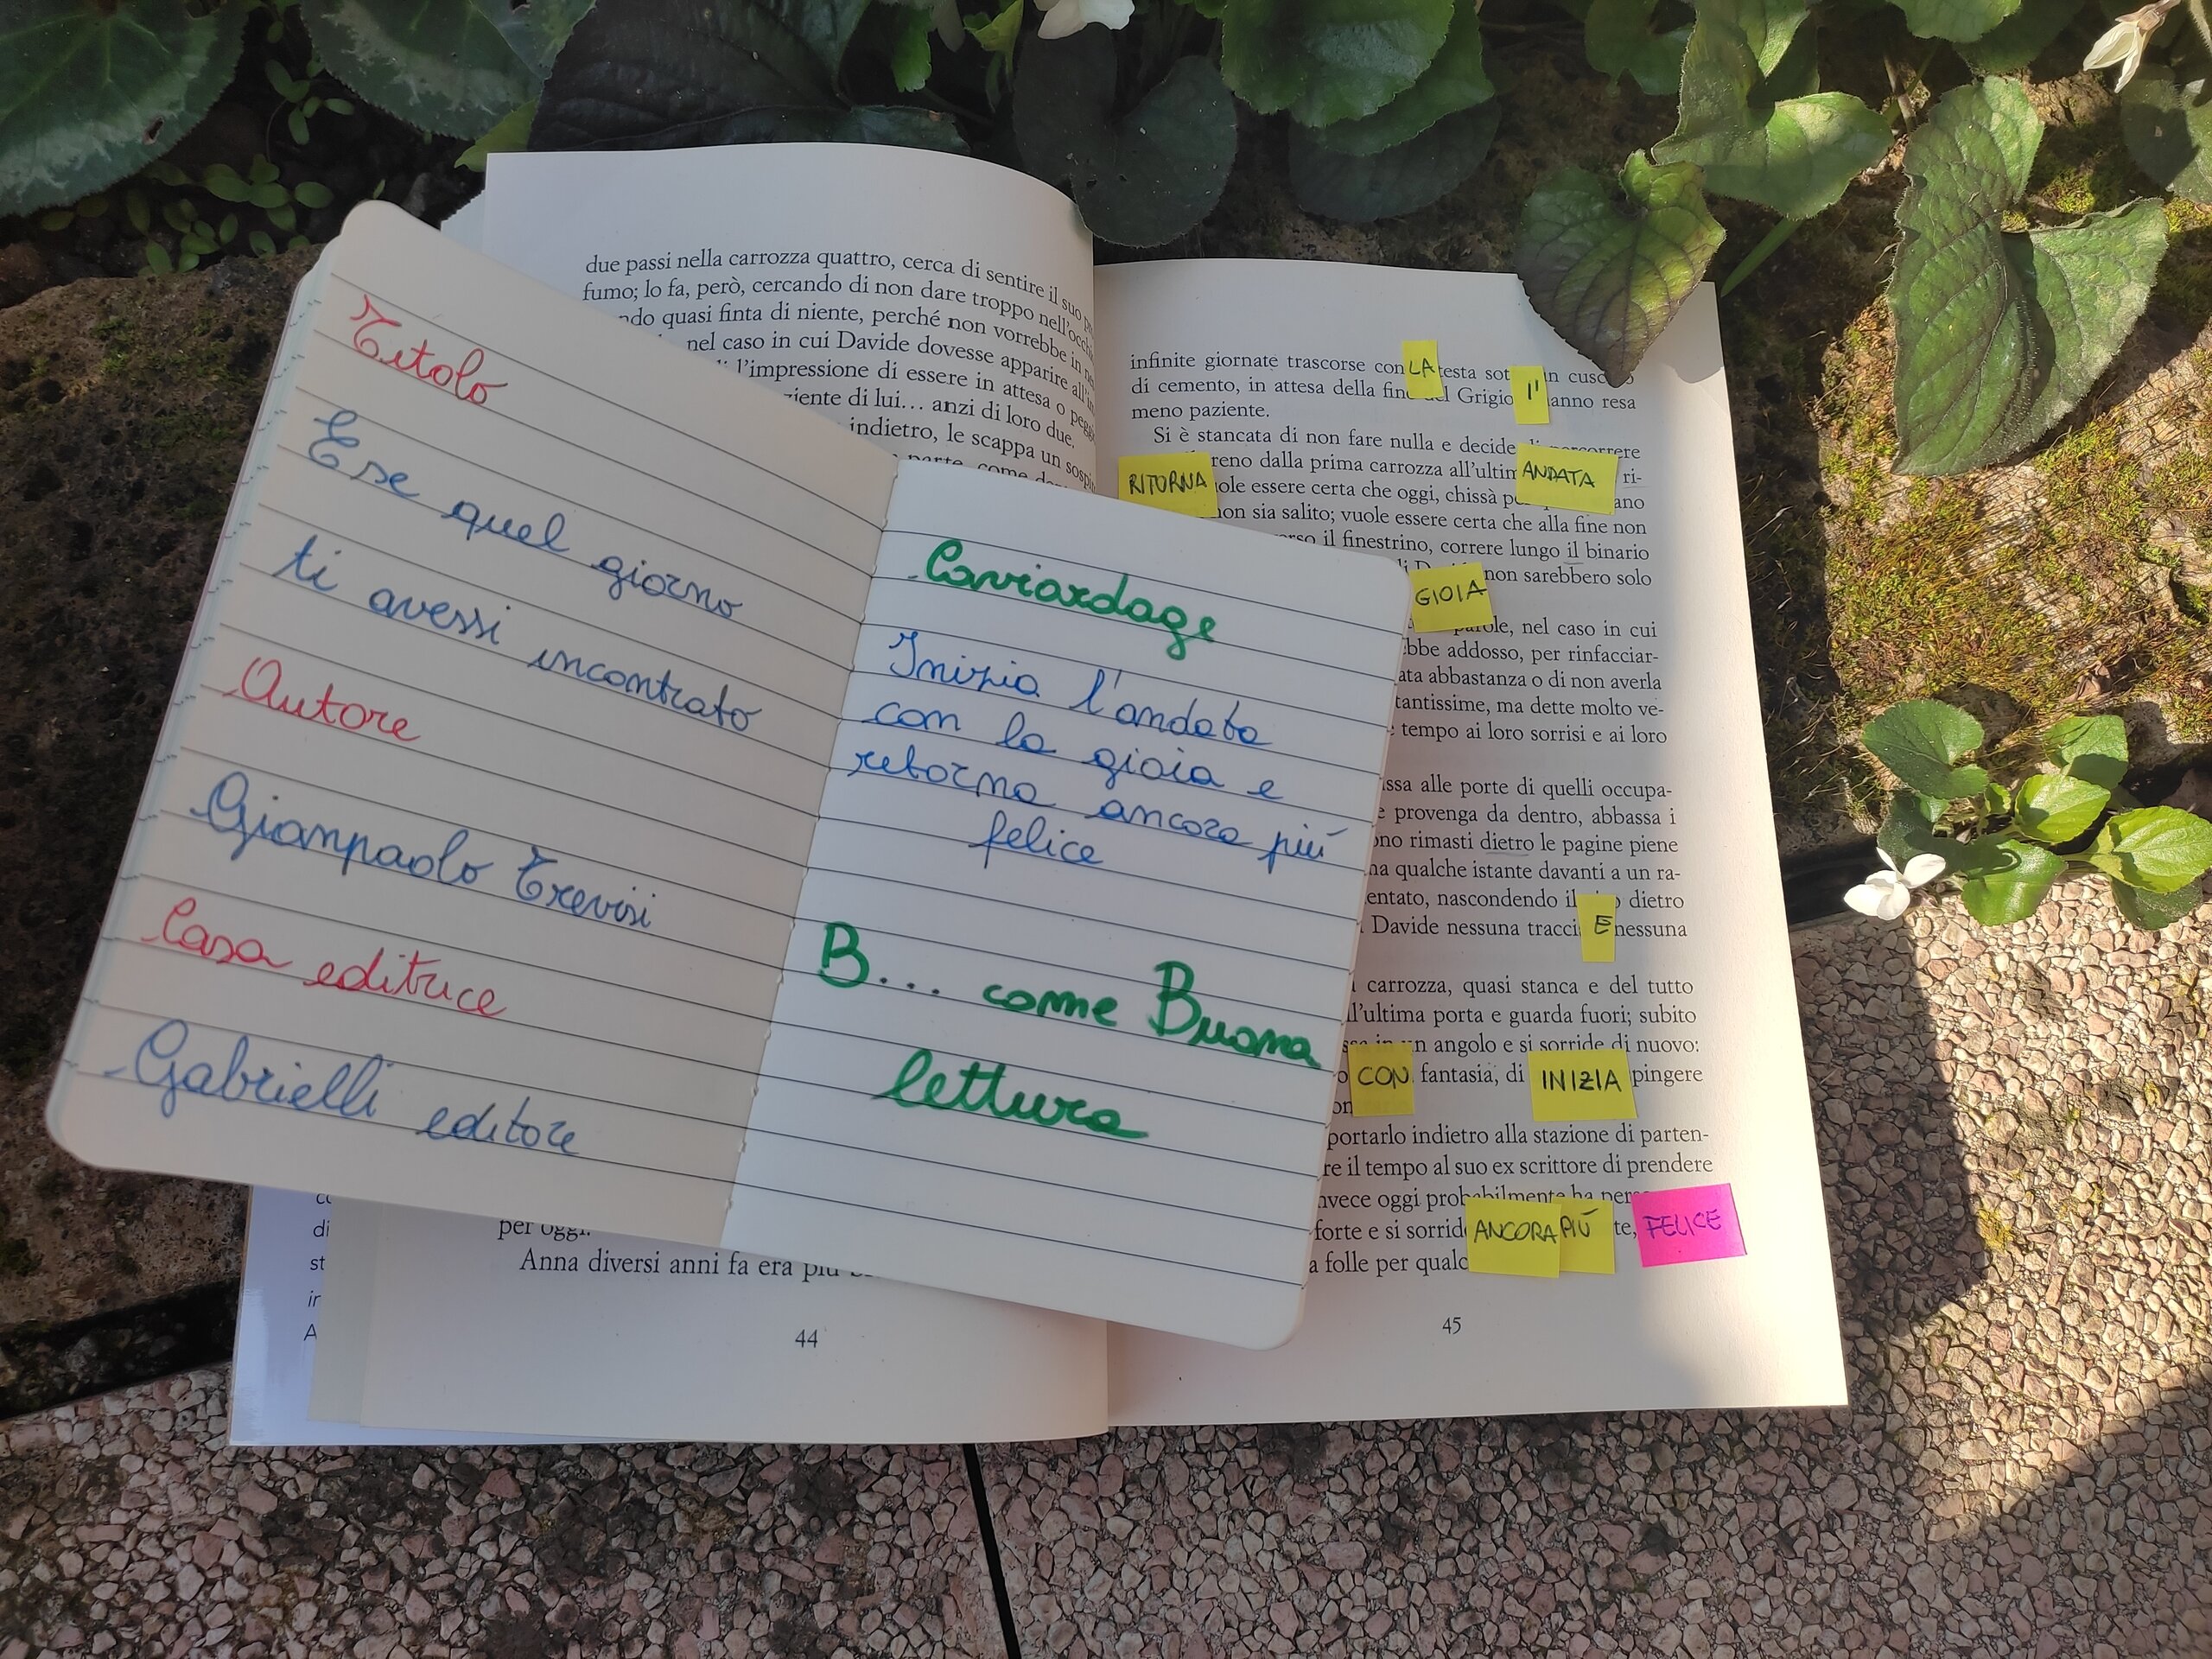 Titolo
E se quel giorno
ti avessi incontrato
Autore
Gianpaolo Trevisi
Casa editrice
Gabrielli editore
Caviardage
Inizia l'andata
con la gioia e
retorna ancora più
felice
B... come Buona
lettura
due passi nella carrozza quattro, cerca di sentire il suo
fumo; lo fa, però, cercando di non dare troppo nell'occhio
quasi finta di niente, perché non vorrebbe in
nel caso in cui Davide dovesse apparire
l'impressione di essere in attesa o
di lui... anzi di loro due.
indietro, le scappa un
parte, come
per oggi.
Anna diversi anni fa era più
44
infinite giornate trascorse con LA testa
di cemento, in attesa della fine Grigio l' anno resa
meno paziente.
Si è stancata di non fare nulla e decide percorrere
dalla prima carrozza ANDATA ri-
RITORNA essere certa che oggi, chissà
non sia salito; vuole essere certa che alla fine non
il finestrino, correre lungo il binario
GIOIA non sarebbero solo
nel caso in cui
addosso, per rinfacciar-
abbastanza o di non averla
ma dette molto ve-
tempo ai loro sorrisi e ai loro
alle porte di quelli occupa-
e provenga da dentro, abbassa i
rimasti dietro le pagine piene
qualche istante davanti a un ra-
nascondendo il dietro
Davide nessuna E nessuna
carrozza, quasi stanca e del tutto
l'ultima porta e guarda fuori; subito
in un angolo e si sorride di nuovo:
CON fantasia, di INIZIA
portarlo indietro alla stazione di parten-
il tempo al suo ex scrittore di prendere
oggi probabilmente ha
forte e si ANCORA PIÙ FELICE
folle per
45